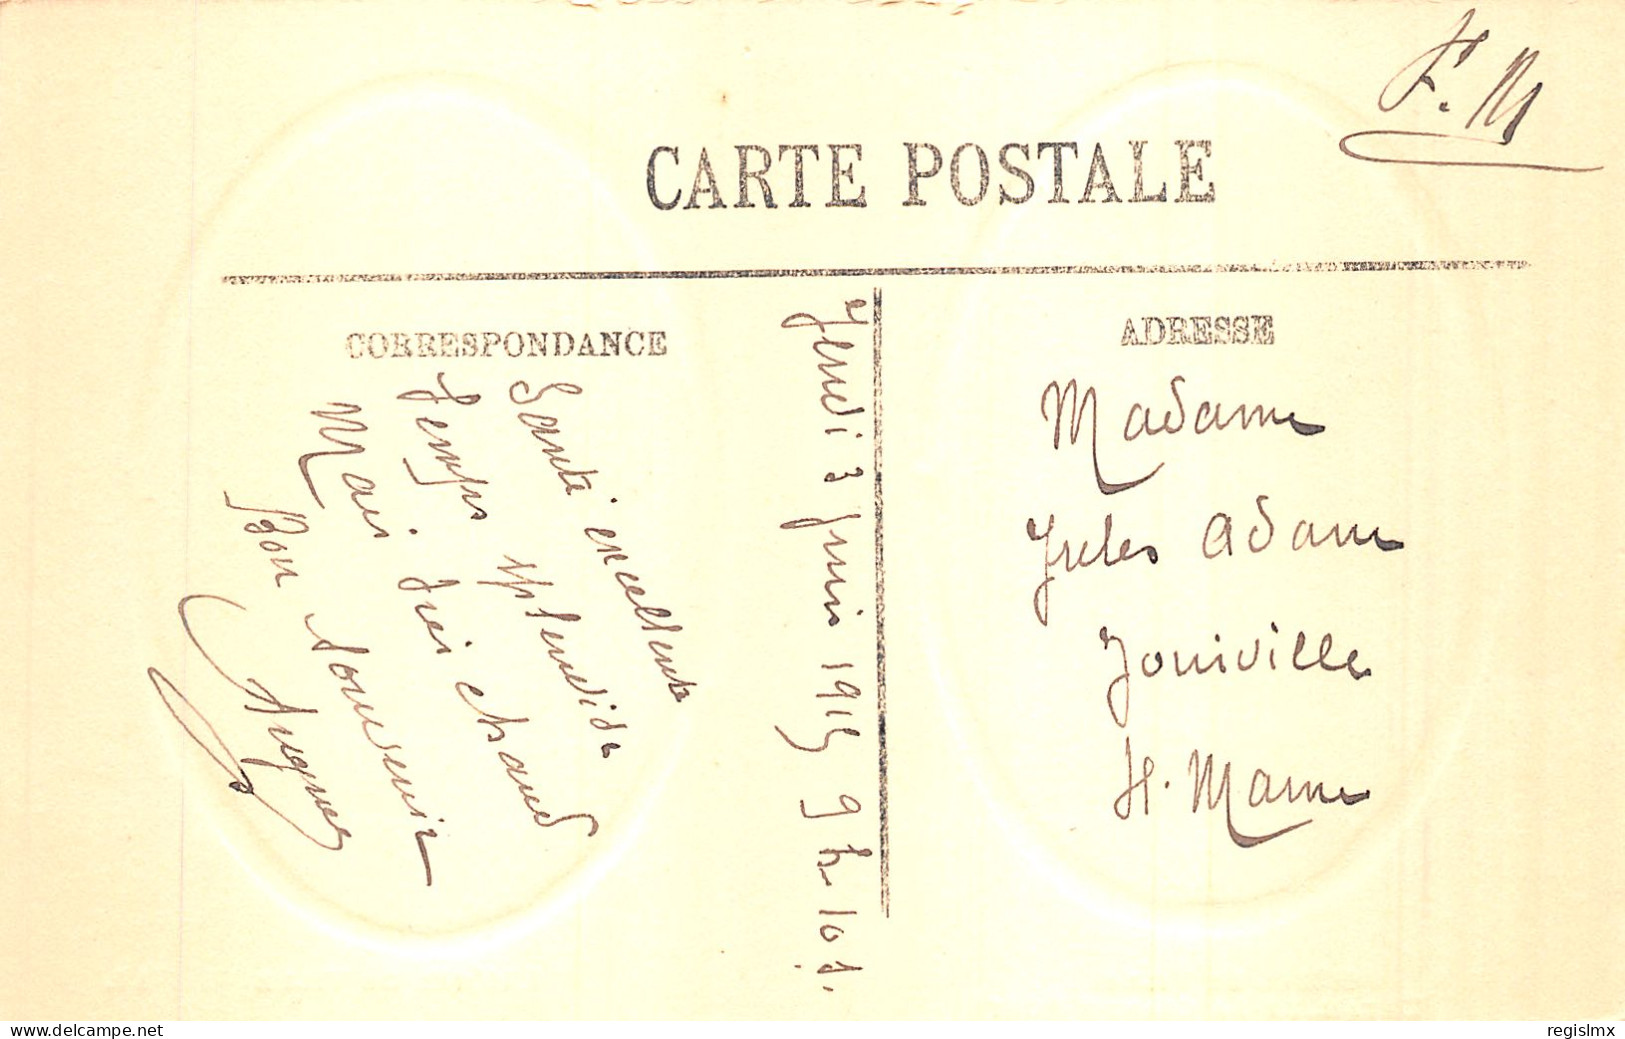 F. M
CARTE POSTALE
CORRESPONDANCE
Jeudi 3 Juin 1915 9 h. 10 s.
Santé excellente
Temps splendide
Mais très chaud
Bon souvenir
ADRESSE
Madame
Jules Adam
Joinville
H. Marne
delcampe.net
regislmx